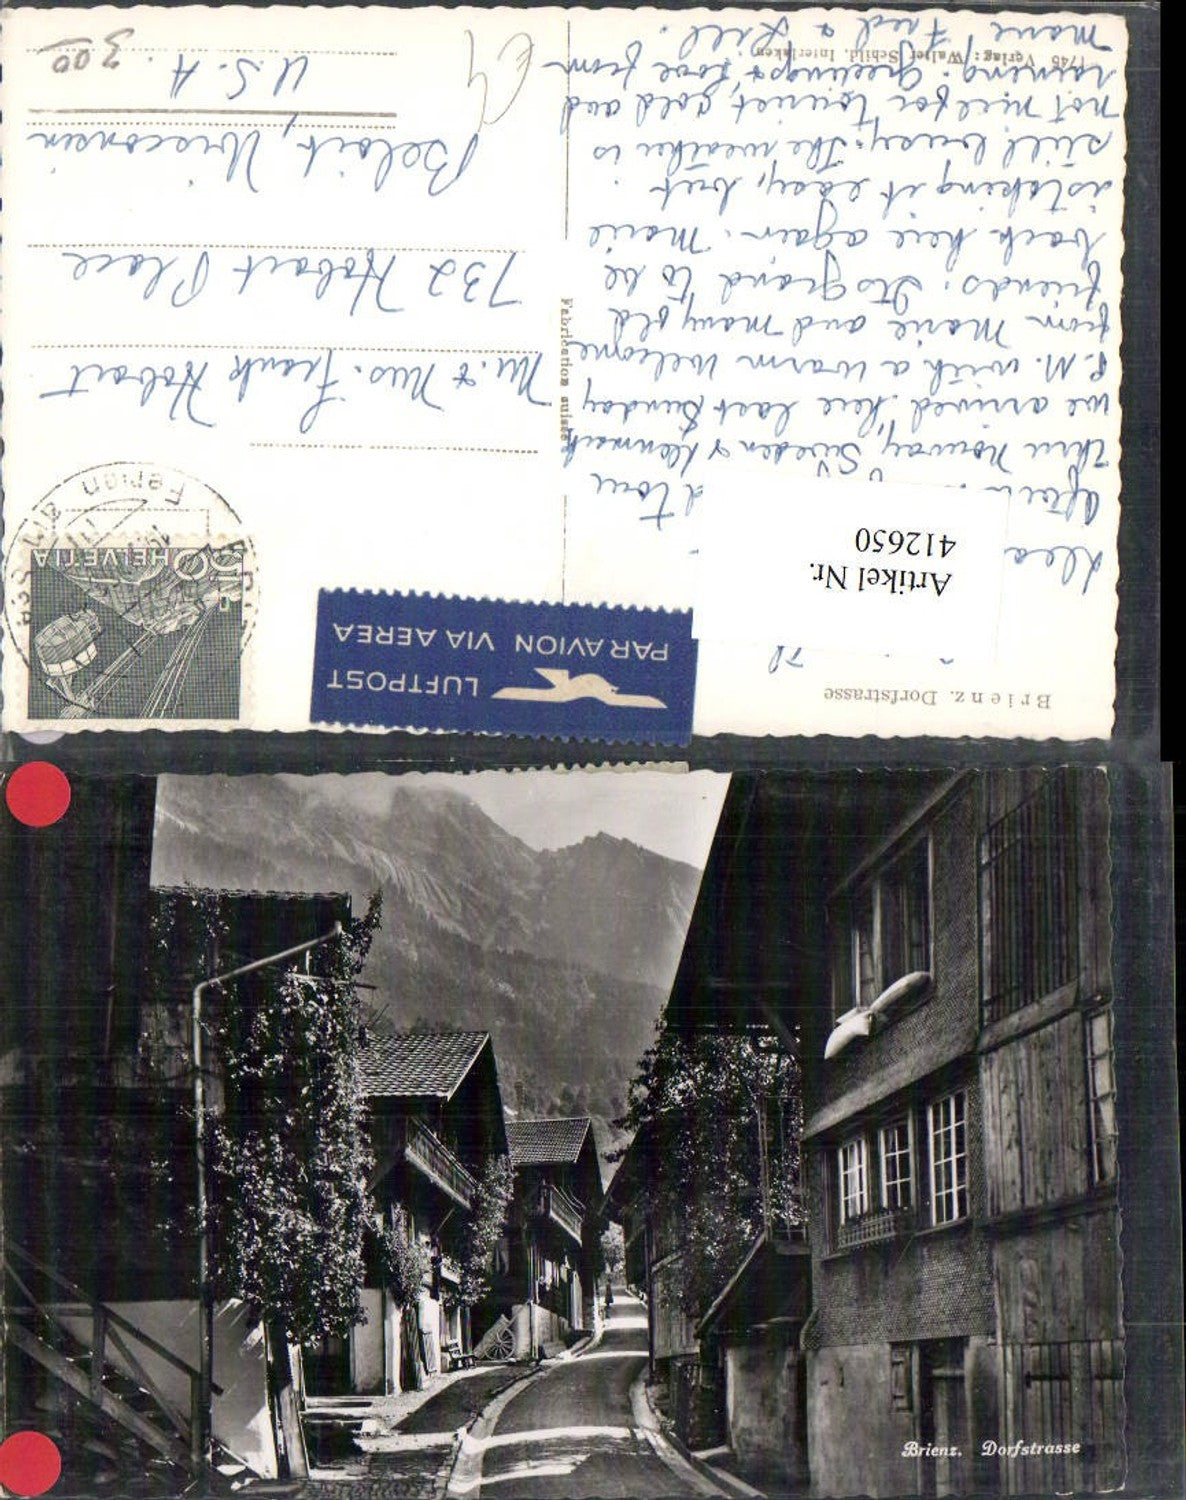 Brienz. Dorfstrasse
LUFTPOST
PAR AVION VIA AEREA
HELVETIA
Artikel Nr.
412650
tour
thru Norway, Sweden & Denmark
we arrived here last Sunday
P.M. with a warm welcome
from Marie and many old
friends. Its grand to be
back here again. Marie
is taking it easy, but
still busy. The weather is
not nice for tourist, cold and
raining. Greetings & love from
Marie Fred &
1746 Verlag: Walter Schild, Interlaken
Fabrication suisse
Mr. & Mrs. Frank Hobart
732 Hobart Place
Beloit, Wisconsin
U.S.A.
3.00
Brienz. Dorfstrasse